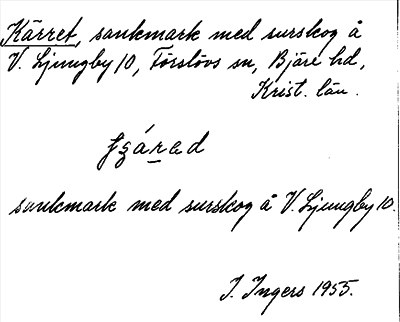 Kärret, sankmark med surskog å
V. Ljungby 10, Förslövs sn, Bjäre hd,
Krist. län.
sankmark med surskog å V. Ljungby 10.
J. Ingers 1955.